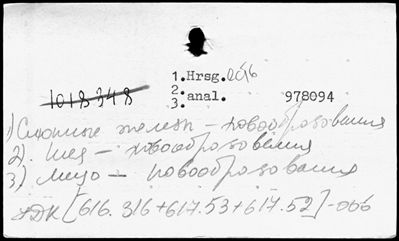 1018348
1. Hrsg.
2.
3. anal. 978094
1) Слюнные железы – новообразования
2). Шея – новообразования
3) Лицо – новообразования
УДК [616.316+617.53+617.52]-006